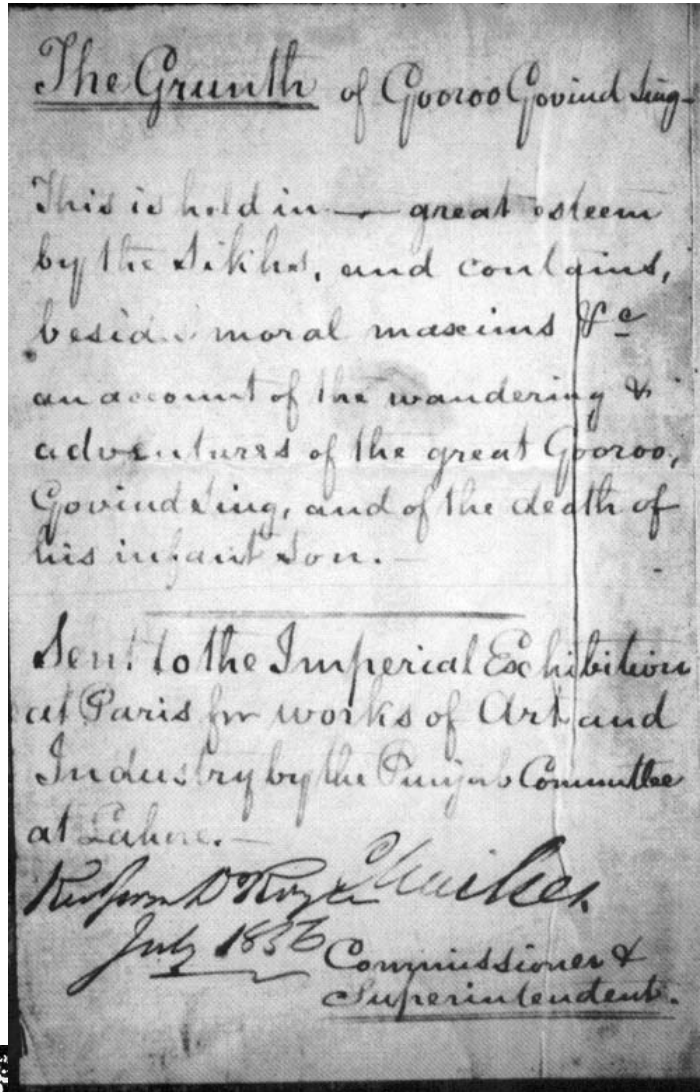 The Grunth of Gooroo Govind Sing
This is held in great esteem
by the Sikhs, and contains,
besides moral maxims &c
an account of the wandering &
adventures of the great Gooroo,
Govind Sing, and of the death of
his infant son.
Sent to the Imperial Exhibition
at Paris for works of Art and
Industry by the Punjab Committee
at Lahore.
July 1856
Commissioner &
Superintendent.